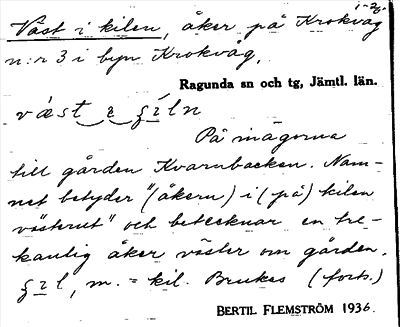 Väst i kilen, åker på Krokvåg
n:r 3 i byn Krokvåg.
Ragunda sn och tg, Jämtl. län.
På inägorna
till gården Kvarnbacken. Nam-
net betyder "(åkern) i (på) kilen
västerut" och betecknar en tre-
kantig åker väster om gården.
m. = kil. Brukas (forts.)
BERTIL FLEMSTRÖM 1936.